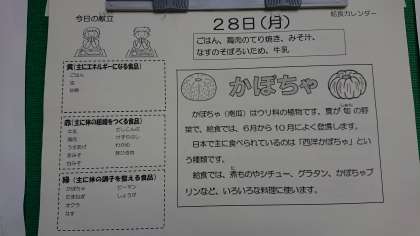 今日の献立
給食カレンダー
28日(月)
ごはん、鶏肉のてり焼き、みそ汁、
なすのそぼろいため、牛乳
黄(主にエネルギーになる食品)
ごはん
油
砂糖
赤(主に体の組織をつくる食品)
牛乳
鶏肉
うすあげ
赤みそ
白みそ
だしこんぶ
けずりぶし
わかめ
豚ひき肉
緑(主に体の調子を整える食品)
かぼちゃ
たまねぎ
オクラ
なす
ピーマン
しょうが
かぼちゃ
かぼちゃ(南瓜)はウリ科の植物です。夏が旬の野
菜で、給食では、6月から10月によく登場します。
日本で主に食べられているのは「西洋かぼちゃ」とい
う種類です。
給食では、煮ものやシチュー、グラタン、かぼちゃプ
リンなど、いろいろな料理に使います。